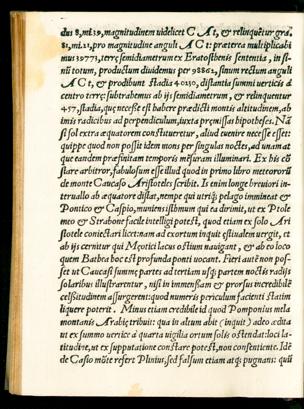 dus 8, mi.39, magnitudinem uidelicet C A t, & relinquetur gra.
81, mi.21, pro magnitudine anguli A C t: præterea multiplicabi
mus 39773, terræ semidiametrum ex Eratosthenis sententia, in si=
nū totum, productum diuidemus per 98862, sinum rectum anguli
A C t, & prodibunt stadia 40230, distantia summi uerticis à
centro terræ: subtrahemus ab ijs semidiametrum, & relinquentur
457, stadia, quæ necesse est habere prædicti montis altitudinem, ab
imis radicibus ad perpendiculum, iuxta præmissas hypotheses. Nā
si sol extra æquatorem constitueretur, aliud euenire necesse esset:
quippe quod non possit idem mons per singulas noctes, ad unam at
que eandem præfinitam temporis mēsuram illuminari. Ex his cō
stare arbitror, fabulosum esse illud quod in primo libro meteororū
de monte Caucaso Aristoteles scribit. Is enim longe breuiori in=
teruallo ab æquatore distat, nempe qui utriq; pelago imminet &
Pontico & Caspio, muniens isthmum qui ea dirimit, ut ex Ptole
meo & Strabone facile intelligi potest, quod etiam ex solo Ari
stotele conijctari licet: nam ad exortum inquit æstiualem uergit, et
ab ijs cernitur qui Mæotici lacus ostium nauigant, & ab eo loco
quem Bathea hoc est profunda ponti uocant. Fieri autē non pos=
set ut Caucasi summæ partes ad tertiam usq; partem noctis radijs
solaribus illustrarentur, nisi in immensam & prorsus incredibilē
celsitudinem assurgerent: quod numeris periculum facienti statim
liquere poterit. Minus etiam credibile id quod Pomponius mela
montanis Arabiæ tribuit: qua in altum abit (inquit) adeo ædita
ut ex summo uertice à quarta uigilia ortum solis ostendat: loci la=
titudine, ut ex supputatione constare potest, non consentiente. Idē
de Casio mōte refert Plinius, sed falsum etiam atq; pugnans: quū